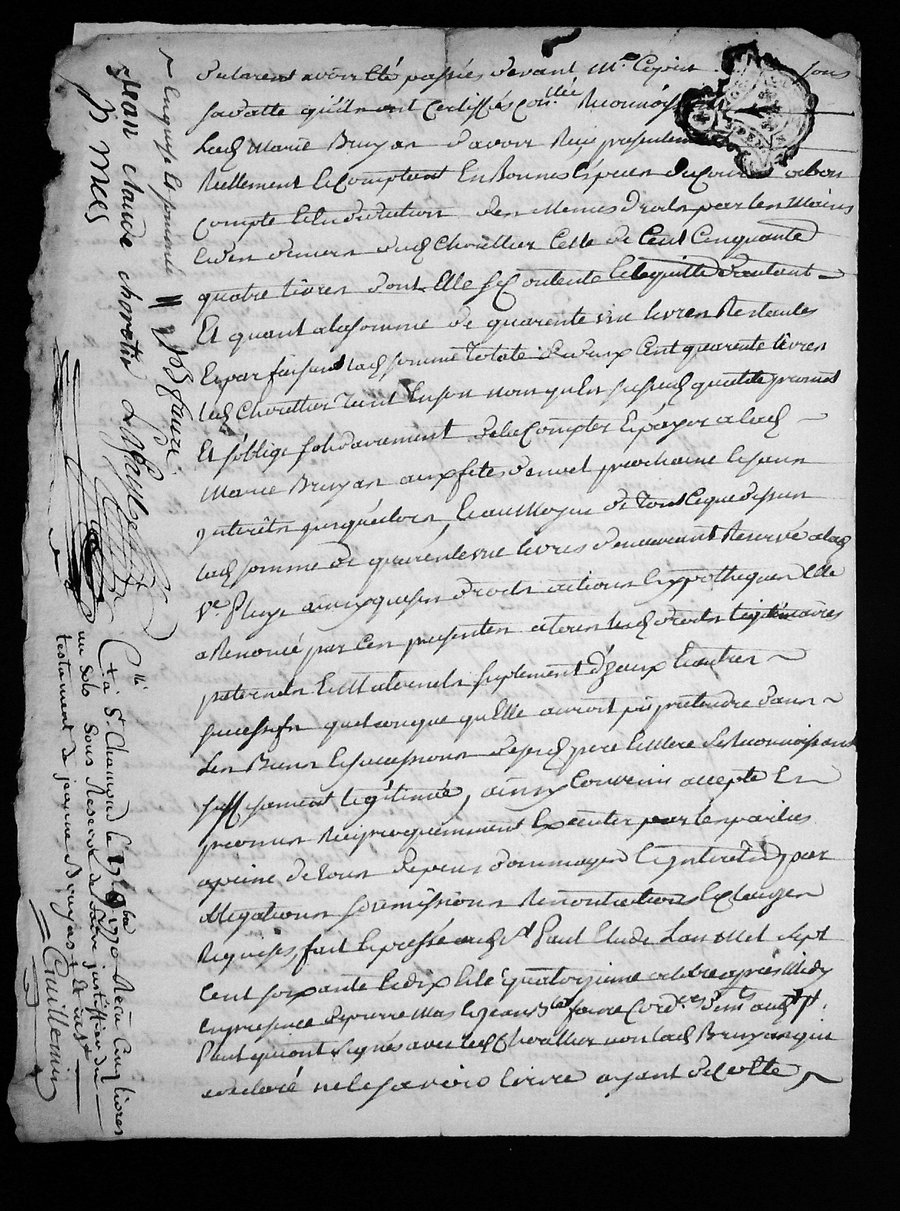 declarent avoir été passées devant Me sous
sa datte qu'ils ont certiffiés Reconnois
Ladte Marie Bruyas d'avoir Reçu presentem
Reellement Le Comptant En Bonnes Espèces Du Cour abon
Compte de Les Mêmes Droits par Les Mains
dudt Chorellier Celle de Cent Cinquante
quatre Livres dont Elle se Contente Le quitte d'autant
Et quant a la somme de quarente six Livres Restantes
Et parfaisant ladte somme Totale de deux Cent quarente Livres
Ledt Chorellier Tant En son nom qu'En susdte qualité promet
Et s'oblige solidairement de la Compter Et payer a ladte
Marie Bruyas aux fêtes de noel prochaine Et sans
interêts jusqu'alors, Et au Moyen de Tout Ce que dessus
ladte somme de quarente six Livres demeurant Reservé a ladte
Ve ainsy que ses droits actions Et hypotheques Elle
a Renoncé par Ces presentes a tous lesdts droits Legitimaires
paternels Et Maternels suplement d'yceux Et autres
successifs quelconque qu'Elle auroit pû pretendre dans
Les Biens Et successions desdts pere Et Mere se Reconnoissant
suffisament Legitimée, ainsy Convenu accepté En
promis Reciproquemment Executer par les parties
a peine de tous depens dommages Et interêts par
obligations soumissions Renontiations Et Clauses
Requises fait Et passé audt St Paul L'an Mil Sept
Cent soixante Et dix Et le quatorzieme octobre après Midy
En presence de pierre Mas Et Jean Bte faure Cordrs demts audt St
Paul qui ont signés avec ledt Chorellier non ladte Bruyas qui
a declaré ne le sçavoir Ecrire ayant de Cette
Enquise Et sommée // JB faure
Jean claude chorellier
P. Mas
Clllé à St Chamond le 17 8bre 1770 Reçu Cinq livres
un solo sous Reserve de faire justiffier du
testament de jeanne Bruyas
Guillemin